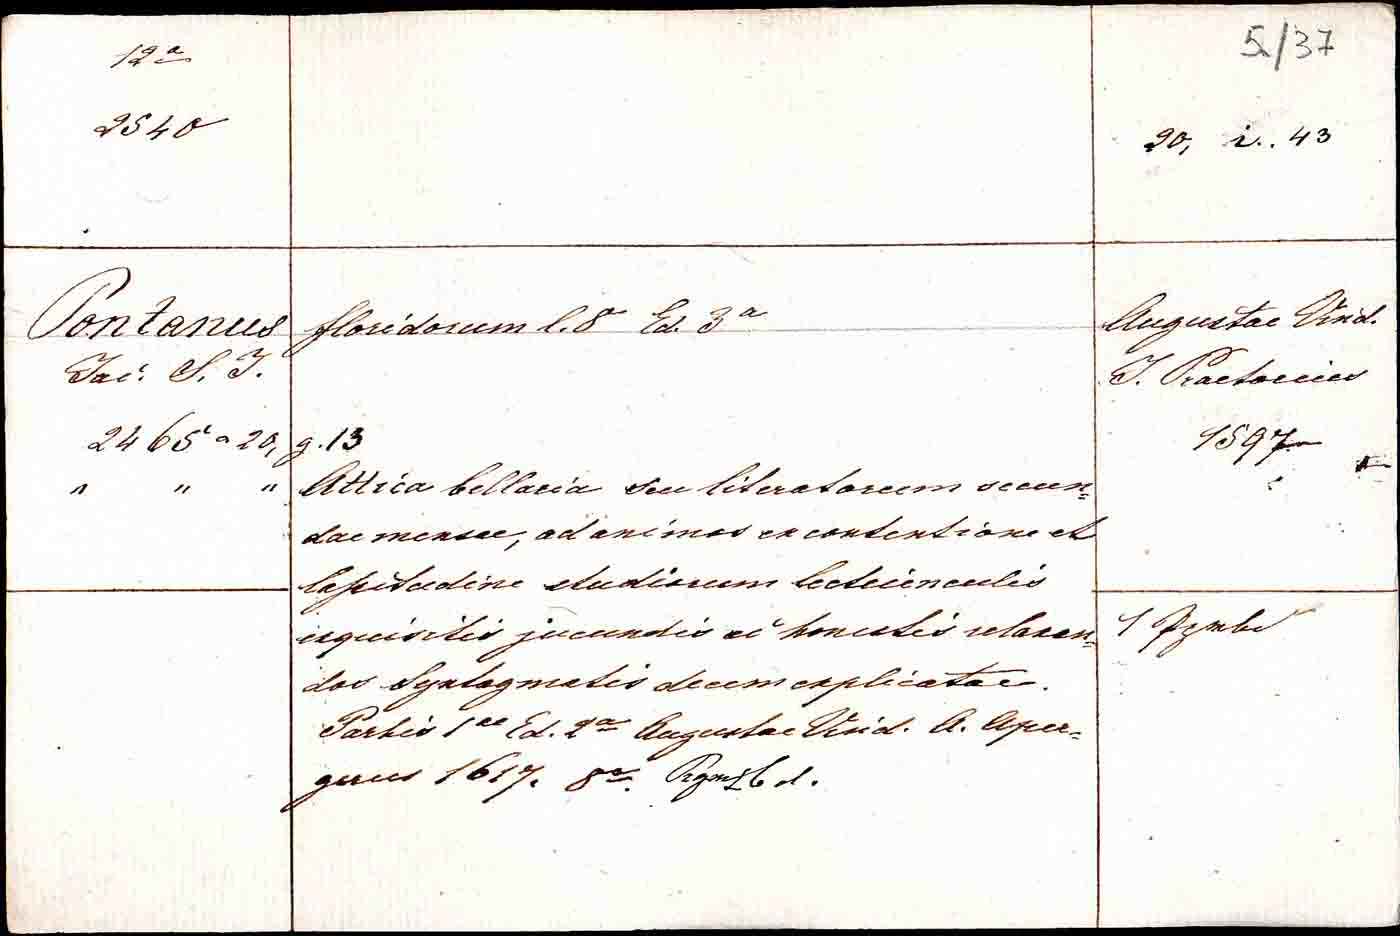 12a
2540
5/37
20, i. 43
Pontanus
Jac. S. J.
floridorum l. 8 Ed. 3a
Augustae Vind.
J. Praetorius
1597
2465 a 20, g. 13
" " " Attica bellaria seu literatorum secun=
dae mensae, ad animos ex contentione et
lassitudine studiorum lectiunculis
exquisitis jucundis ac honestis relaxan=
dos Syntagmatis decem explicatae.
Partis 1ae Ed. 2a Augustae Vind. A. Aper=
gerus 1617. 8o.
1